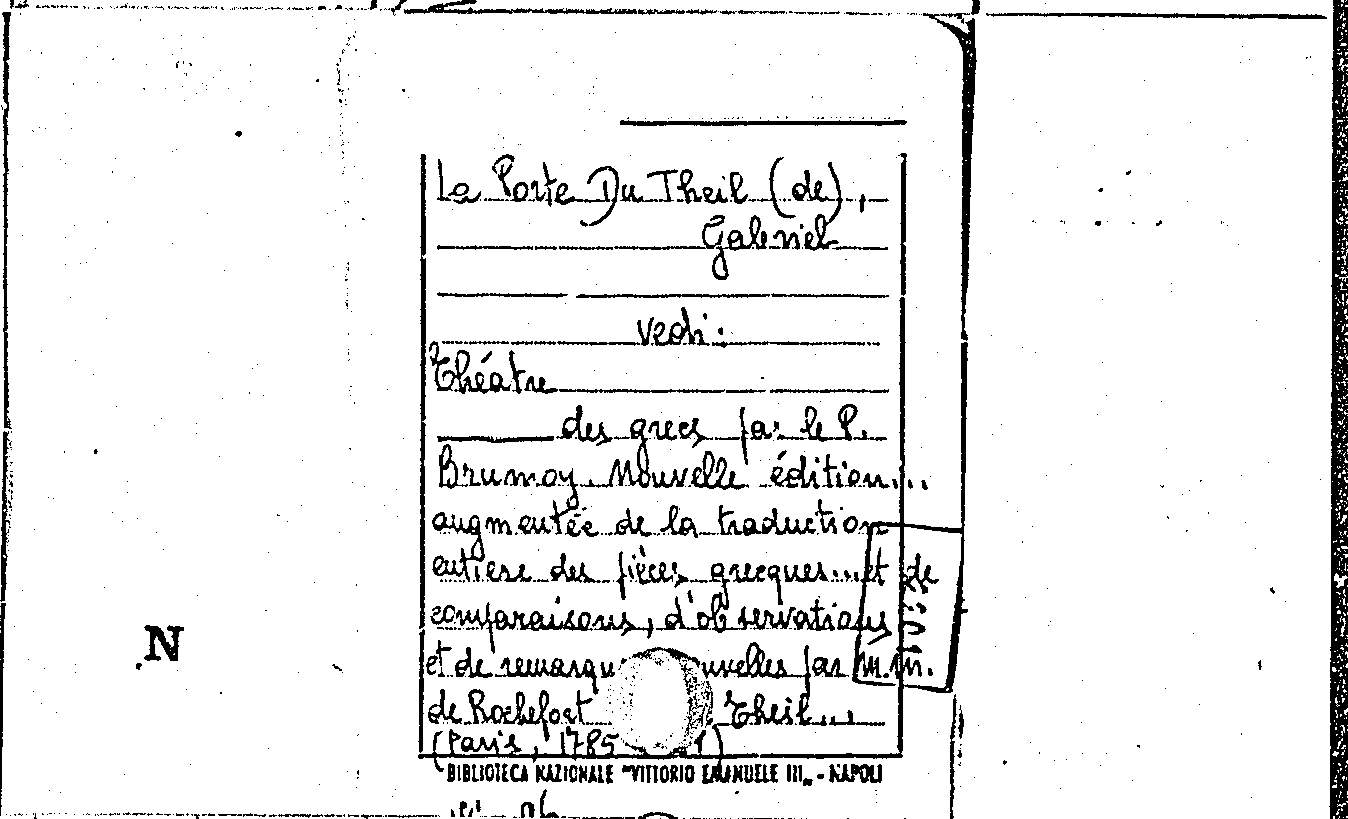 La Porte Du Theil (de),
Gabriel
vedi:
Théatre
des grecs par le P.
Brumoy. Nouvelle édition...
augmentée de la traduction
entiere des pièces grecques... et de
comparaisons, d'observations
et de remarqu uvelles par m.m.
de Rochefort Theil...
(Paris, 1785
N
BIBLIOTECA NAZIONALE "VITTORIO EMANUELE III„ - NAPOLI